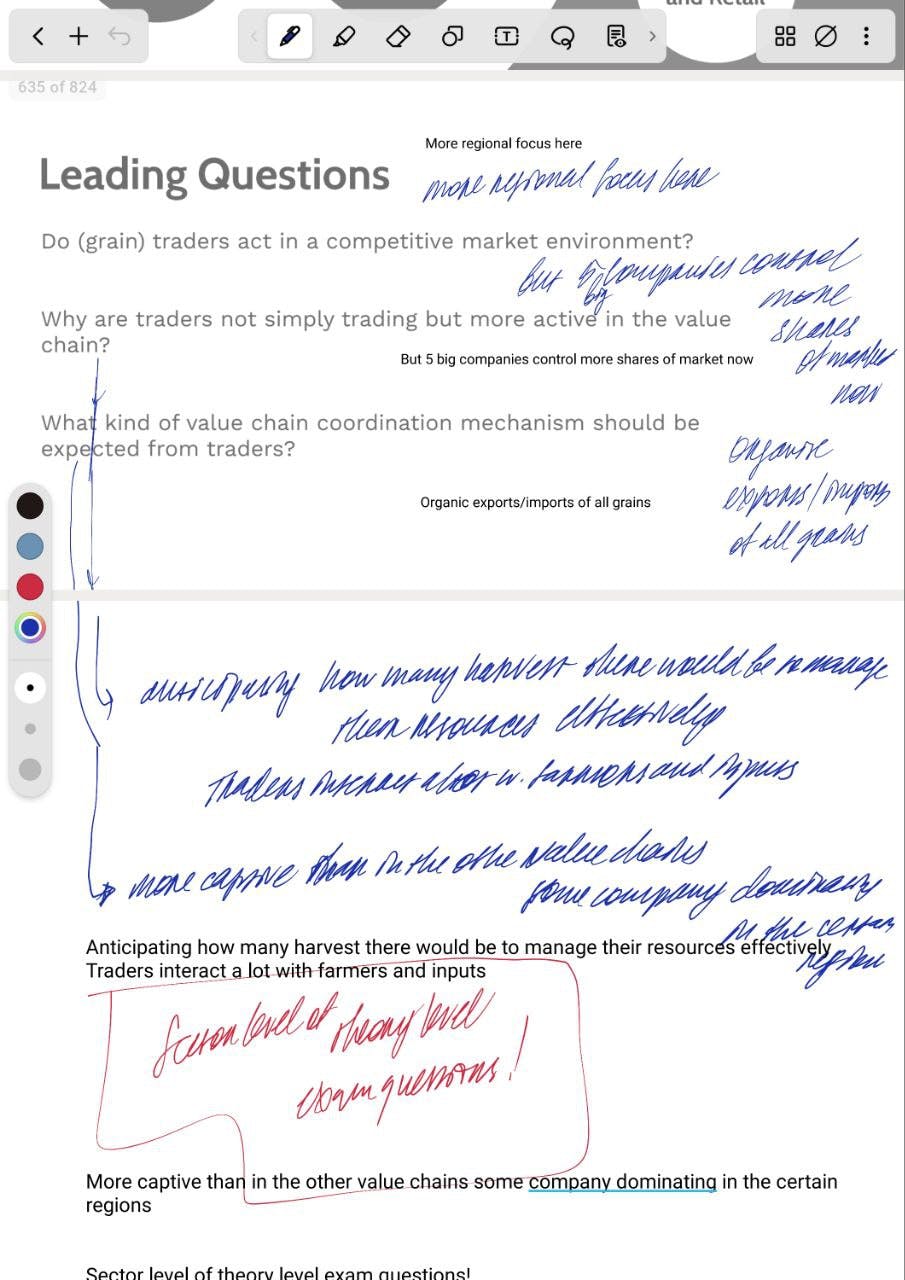 and Retail
635 of 824
More regional focus here
Leading Questions
more regional focus here
Do (grain) traders act in a competitive market environment?
but 5 big companies control
more
shares
of market
now
Why are traders not simply trading but more active in the value
chain?
But 5 big companies control more shares of market now
What kind of value chain coordination mechanism should be
expected from traders?
Organise
exports/imports
of all grains
Organic exports/imports of all grains
anticipating how many harvest there would be to manage
their resources effectively
Traders interact a lot w. farmers and inputs
more captive than in the other value chains
some company dominating
in the certain
region
Anticipating how many harvest there would be to manage their resources effectively
Traders interact a lot with farmers and inputs
Sector level of theory level
exam questions!
More captive than in the other value chains some company dominating in the certain
regions
Sector level of theory level exam questions!